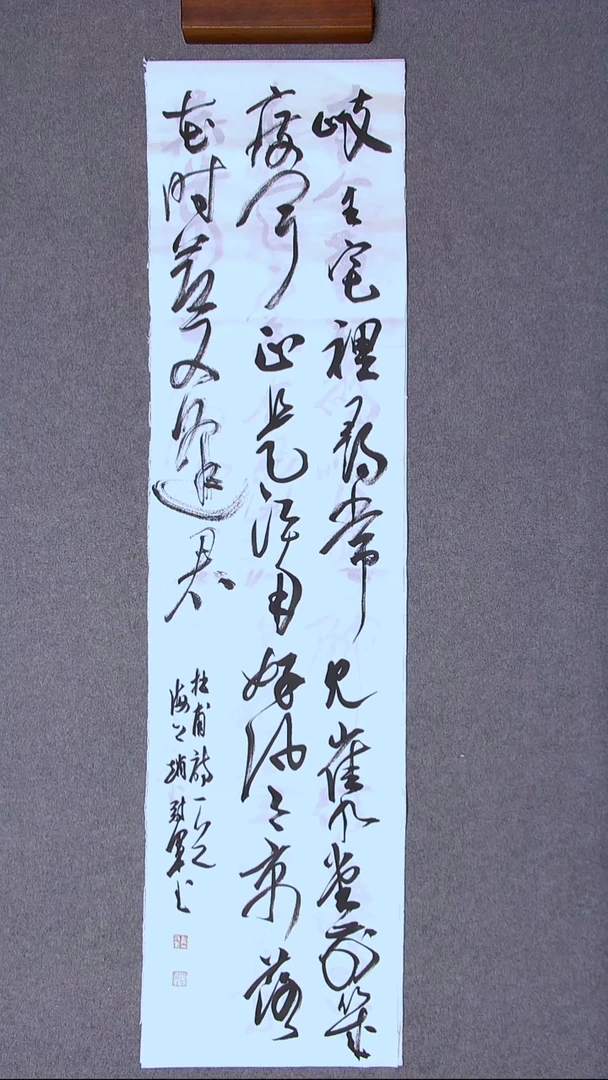 岐王宅裡尋常見崔九堂前幾
度聞正是江南好風景落
花时節又逢君
杜甫詩一首
海上趙軍书